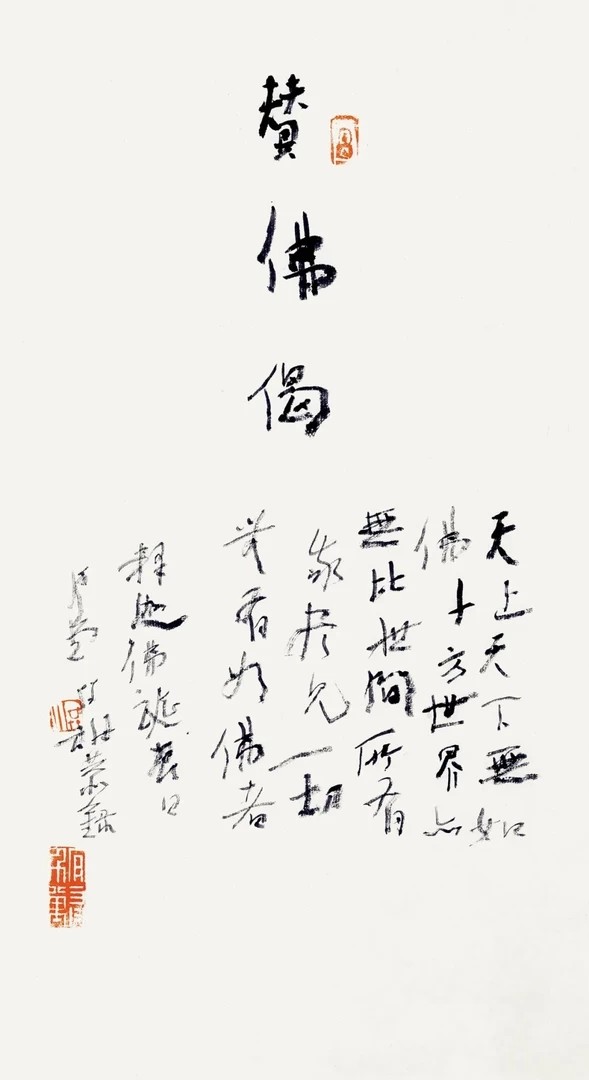 賛佛偈
天上天下無如
佛十方世界亦
無比世間所有
我尽見一切
無有如佛者
釋迦佛誕辰日
恭錄